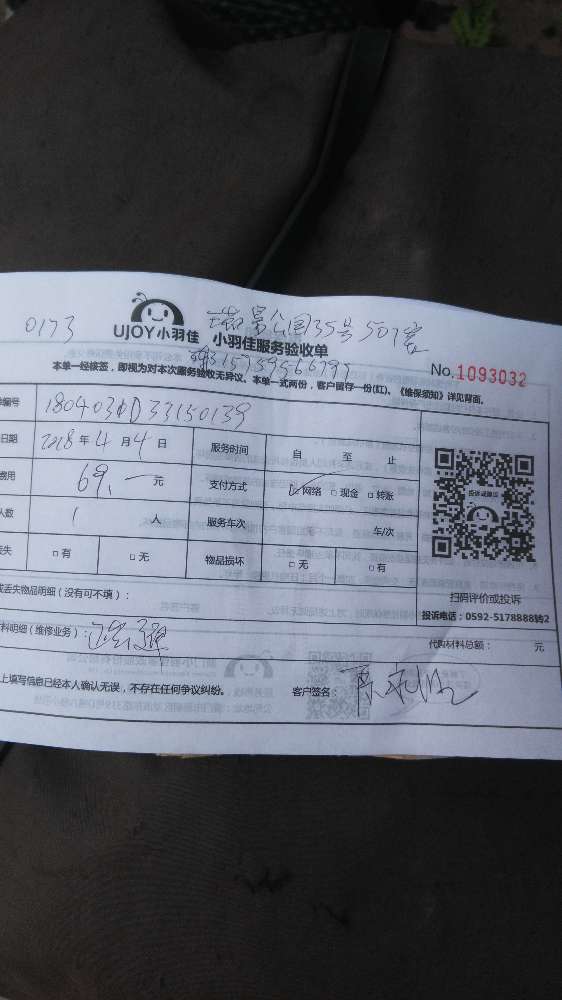 0173
瑞景公园35号507室
UJOY小羽佳 小羽佳服务验收单
15759566797
本单一经核签，即视为对本次服务验收无异议。本单一式两份，客户留存一份(红)。《维保须知》详见背面。
No.1093032
编号 180403
日期 2018年4月4日 服务时间 自 至 止
费用 69.一元 支付方式 ☑网络 □现金 □转账
人数 1 人 服务车次 车/次
丢失 □有 □无 物品损坏 □无 □有
投诉或建议
扫码评价或投诉
投诉电话：0592-5178888转2
或丢失物品明细（没有可不填）：
料明细（维修业务）： 代购材料总额： 元
上填写信息已经本人确认无误，不存在任何争议纠纷。 客户签名：